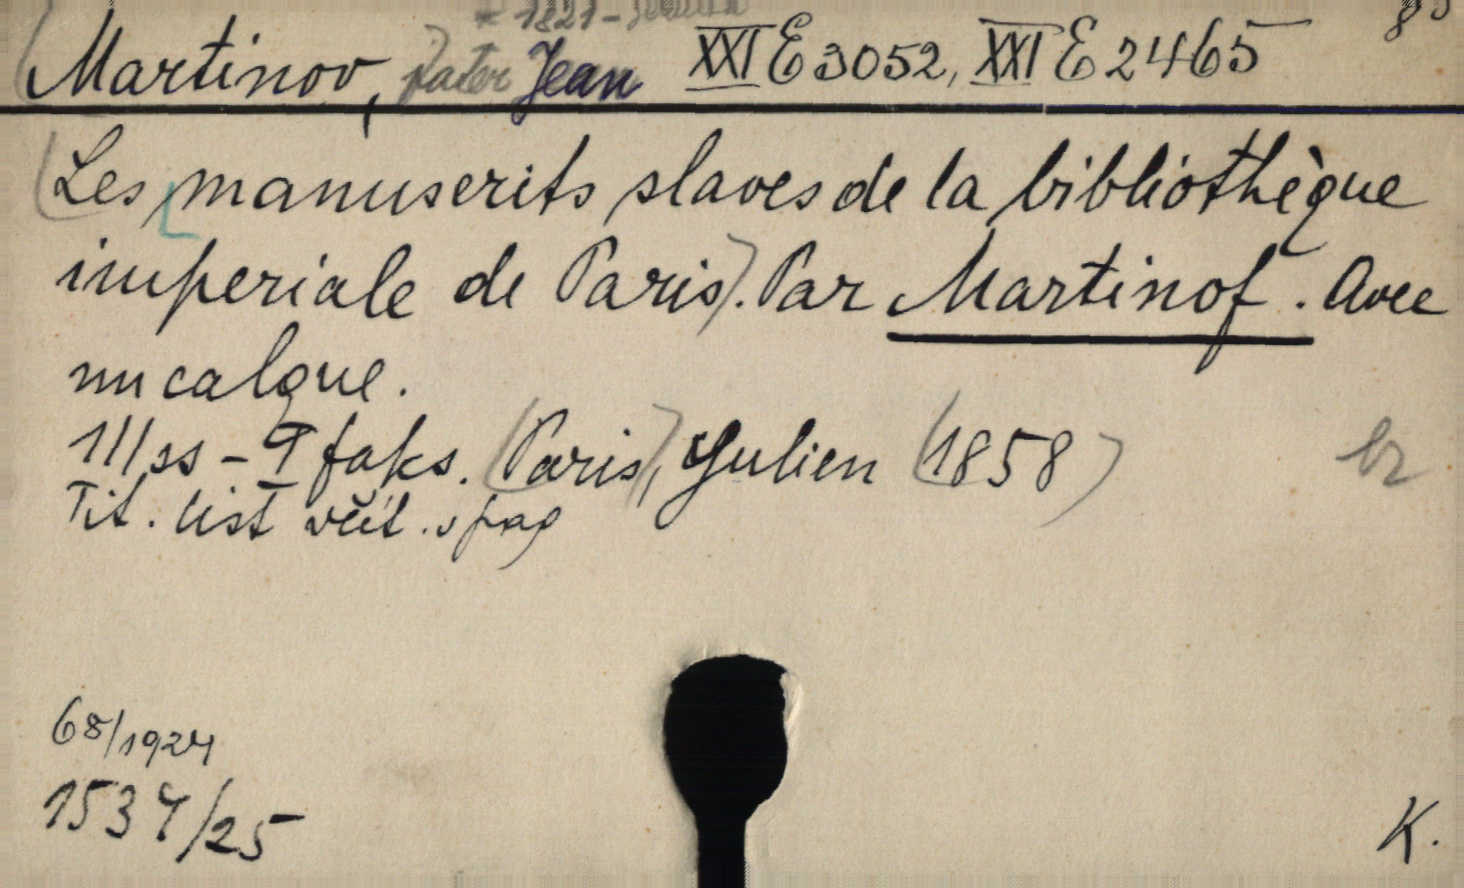 * 1821 -
Martinov, pater Jean XXI E 3052, XXI E 2465
(Les manuscrits slaves de la bibliothèque
imperiale de Paris). Par Martinof. Avec
un calque.
111 ss - 9 faks. (Paris), Julien (1858)
br
Tit. list včít. v pag
68/1924
1537/25
K.